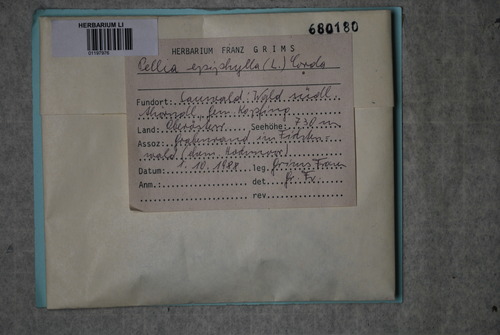 HERBARIUM LI
680180
HERBARIUM FRANZ GRIMS
Pellia epiphylla (L.) Corda
Fundort: Sauwald: Wald südl.
Kopfing
Land: Oberösterr. Seehöhe: 730 m
Assoz: Grabenrand im Fichten-
wald
Datum: 1.10.1980 leg. Grims Franz
Anm.: det. Gr. Fr.
rev.